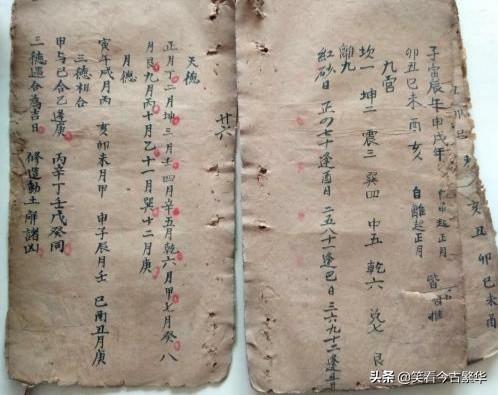 亥丑卯巳未酉
子寅辰午申戌年 起正月
卯丑巳未酉亥 自離起正月
九宮
坎一 坤二 震三 巽四 中五 乾六 兌七 艮
離九
紅砂日 正四七十逢酉日 二五八十一逢巳日 三六九十二逢丑
廿六
天德
正月丁二月坤三月壬四月辛五月乾六月甲七月癸八
月艮九月丙十月乙十一月巽十二月庚
月德
寅午戌月丙 亥卯未月甲 申子辰月壬 巳酉丑月庚
三德相合
甲与己合乙逢庚 丙辛丁壬戊癸同
三德遇合為吉日 修造動土解諸凶
头条 @笑看今古繁华